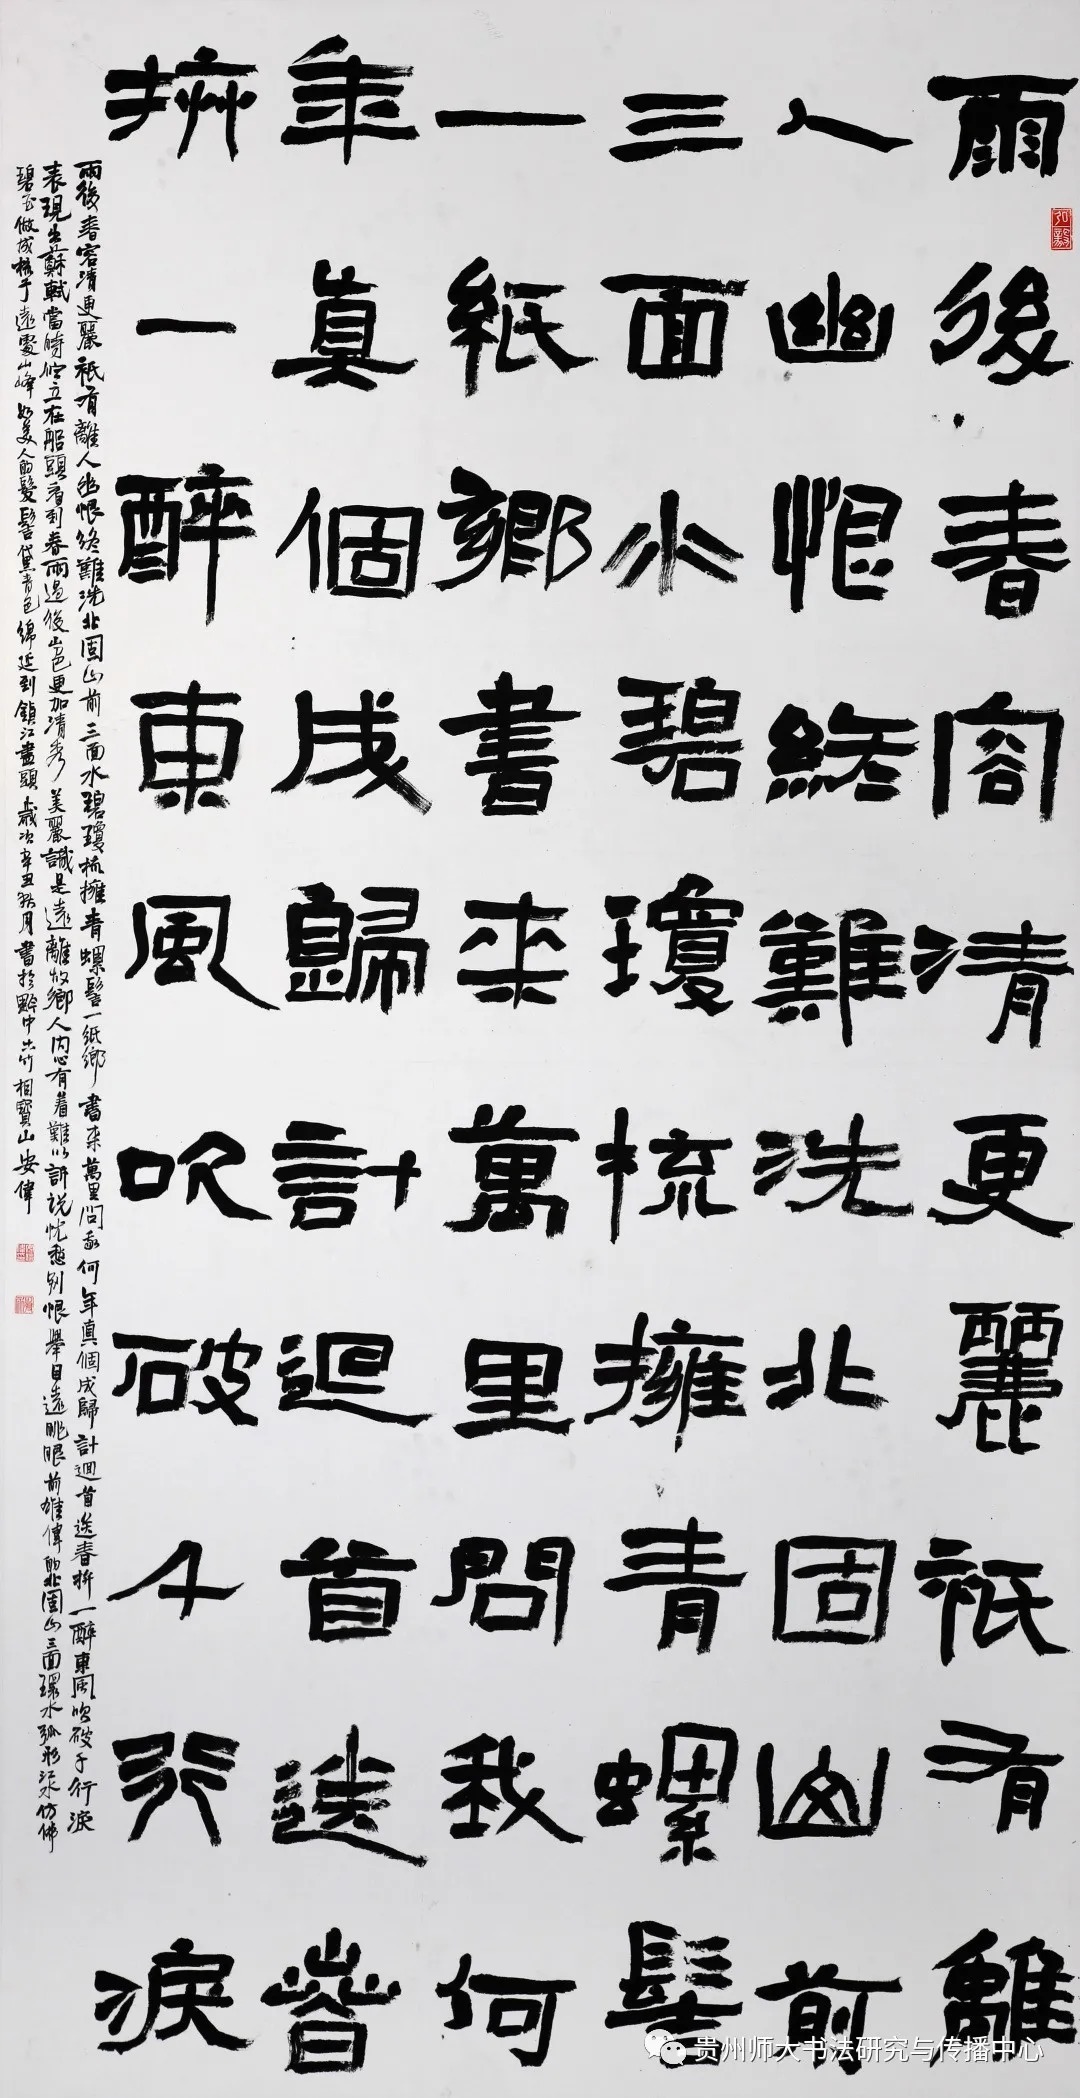 雨後春容清更麗祇有離
人幽恨終難洗北固山前
三面水碧瓊梳擁青螺髻
一紙鄉書來萬里問我何
年真個成歸計迴首送春
拚一醉東風吹破千行淚
雨後春容清更麗祇有離人幽恨終難洗北固山前三面水碧瓊梳擁青螺髻一紙鄉書來萬里問我何年真個成歸計迴首送春拚一醉東風吹破千行淚
表現出蘇軾當時佇立在船頭看到春雨過後山色更加清秀美麗誠是遠離故鄉人內心有着難以訴說忧愁別恨舉目遠眺眼前雄偉的北固山三面環水弧形江水仿佛
碧玉做成梳子遠處山峰如美人的髮髻黛青色綿延到鎮江盡頭歲次辛丑秋月書於黔中相寶山安偉
贵州师大书法研究与传播中心